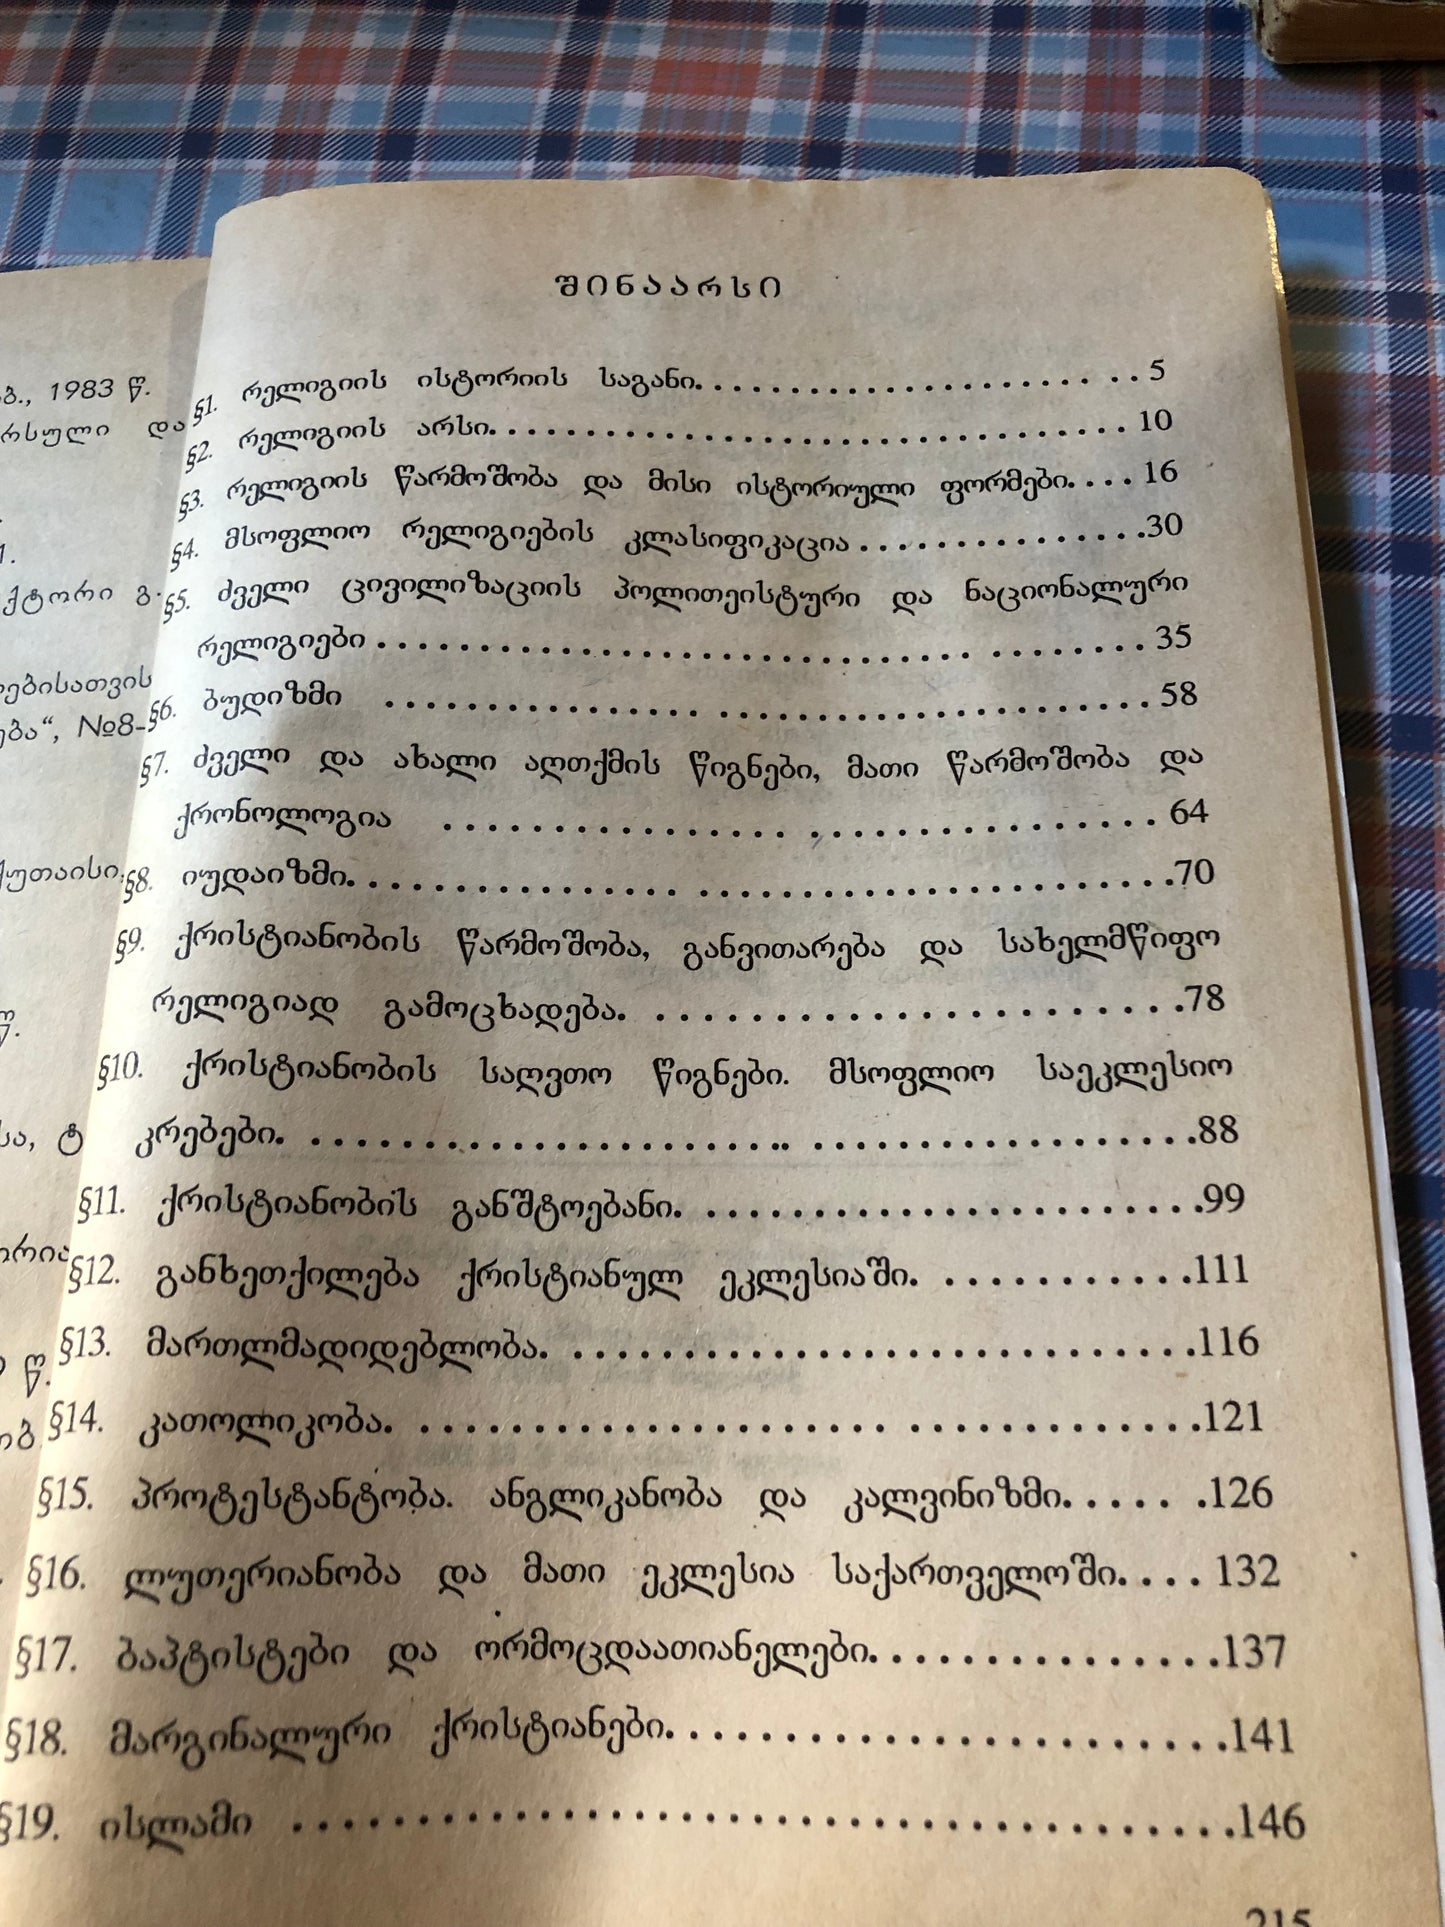 ბ., 1983 წ.
რსული და
1.
ქტორი გ.
ებისათვის
ება“, №8-
ქუთაისი,
წ.
სა, ტ
ორია
წ.
ობ
შინაარსი
§1. რელიგიის ისტორიის საგანი. . . . . . . . . . . . . . . . . . . . . . . . 5
§2. რელიგიის არსი. . . . . . . . . . . . . . . . . . . . . . . . . . . . . . . . . 10
§3. რელიგიის წარმოშობა და მისი ისტორიული ფორმები. . . . 16
§4. მსოფლიო რელიგიების კლასიფიკაცია . . . . . . . . . . . . . . .30
§5. ძველი ცივილიზაციის პოლითეისტური და ნაციონალური
რელიგიები . . . . . . . . . . . . . . . . . . . . . . . . . . . . . . . . . . . . . . . 35
§6. ბუდიზმი . . . . . . . . . . . . . . . . . . . . . . . . . . . . . . . . . . . . . . 58
§7. ძველი და ახალი აღთქმის წიგნები, მათი წარმოშობა და
ქრონოლოგია . . . . . . . . . . . . . . . . . . . . . . . . . . . . . . . . . . . 64
§8. იუდაიზმი. . . . . . . . . . . . . . . . . . . . . . . . . . . . . . . . . . . . . . .70
§9. ქრისტიანობის წარმოშობა, განვითარება და სახელმწიფო
რელიგიად გამოცხადება. . . . . . . . . . . . . . . . . . . . . . . .78
§10. ქრისტიანობის საღვთო წიგნები. მსოფლიო საეკლესიო
კრებები. . . . . . . . . . . . . . . . . . . . . . . . . . .. . . . . . . . . . . . . . . . .88
§11. ქრისტიანობის განშტოებანი. . . . . . . . . . . . . . . . . . . . . . .99
§12. განხეთქილება ქრისტიანულ ეკლესიაში. . . . . . . . . . . .111
§13. მართლმადიდებლობა. . . . . . . . . . . . . . . . . . . . . . . . . . . .116
§14. კათოლიკობა. . . . . . . . . . . . . . . . . . . . . . . . . . . . . . . . . . .121
§15. პროტესტანტობა. ანგლიკანობა და კალვინიზმი. . . . . .126
§16. ლუთერიანობა და მათი ეკლესია საქართველოში. . . . 132
§17. ბაპტისტები და ორმოცდაათიანელები. . . . . . . . . . . . . . .137
§18. მარგინალური ქრისტიანები. . . . . . . . . . . . . . . . . . . . . . .141
§19. ისლამი . . . . . . . . . . . . . . . . . . . . . . . . . . . . . . . . . . . . . .146
215